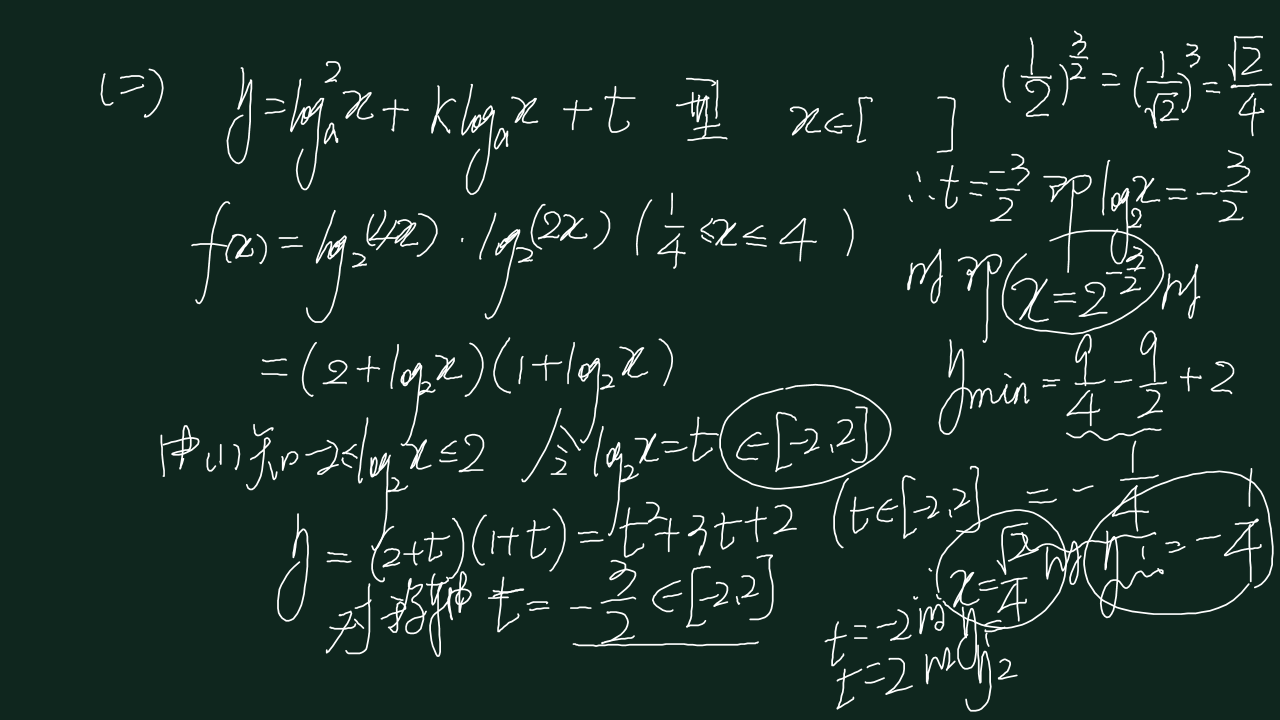 (二) y=log²ₐx+klogₐx+t 型 x∈[ ]
f(x)=log₂(4x)·log₂(2x) (1/4≤x≤4)
=(2+log₂x)(1+log₂x)
由(1)知-2≤log₂x≤2 令log₂x=t∈[-2,2]
y=(2+t)(1+t)=t²+3t+2 (t∈[-2,2]
对称轴 t=-3/2∈[-2,2]
(1/2)^(3/2)=(1/√2)³=√2/4
∴t=-3/2 即log₂x=-3/2
时 即x=2^(-3/2)时
y min=9/4-9/2+2
=-1/4
x=√2/4 时 y min=-1/4
t=-2时y₁
t=2时y₂